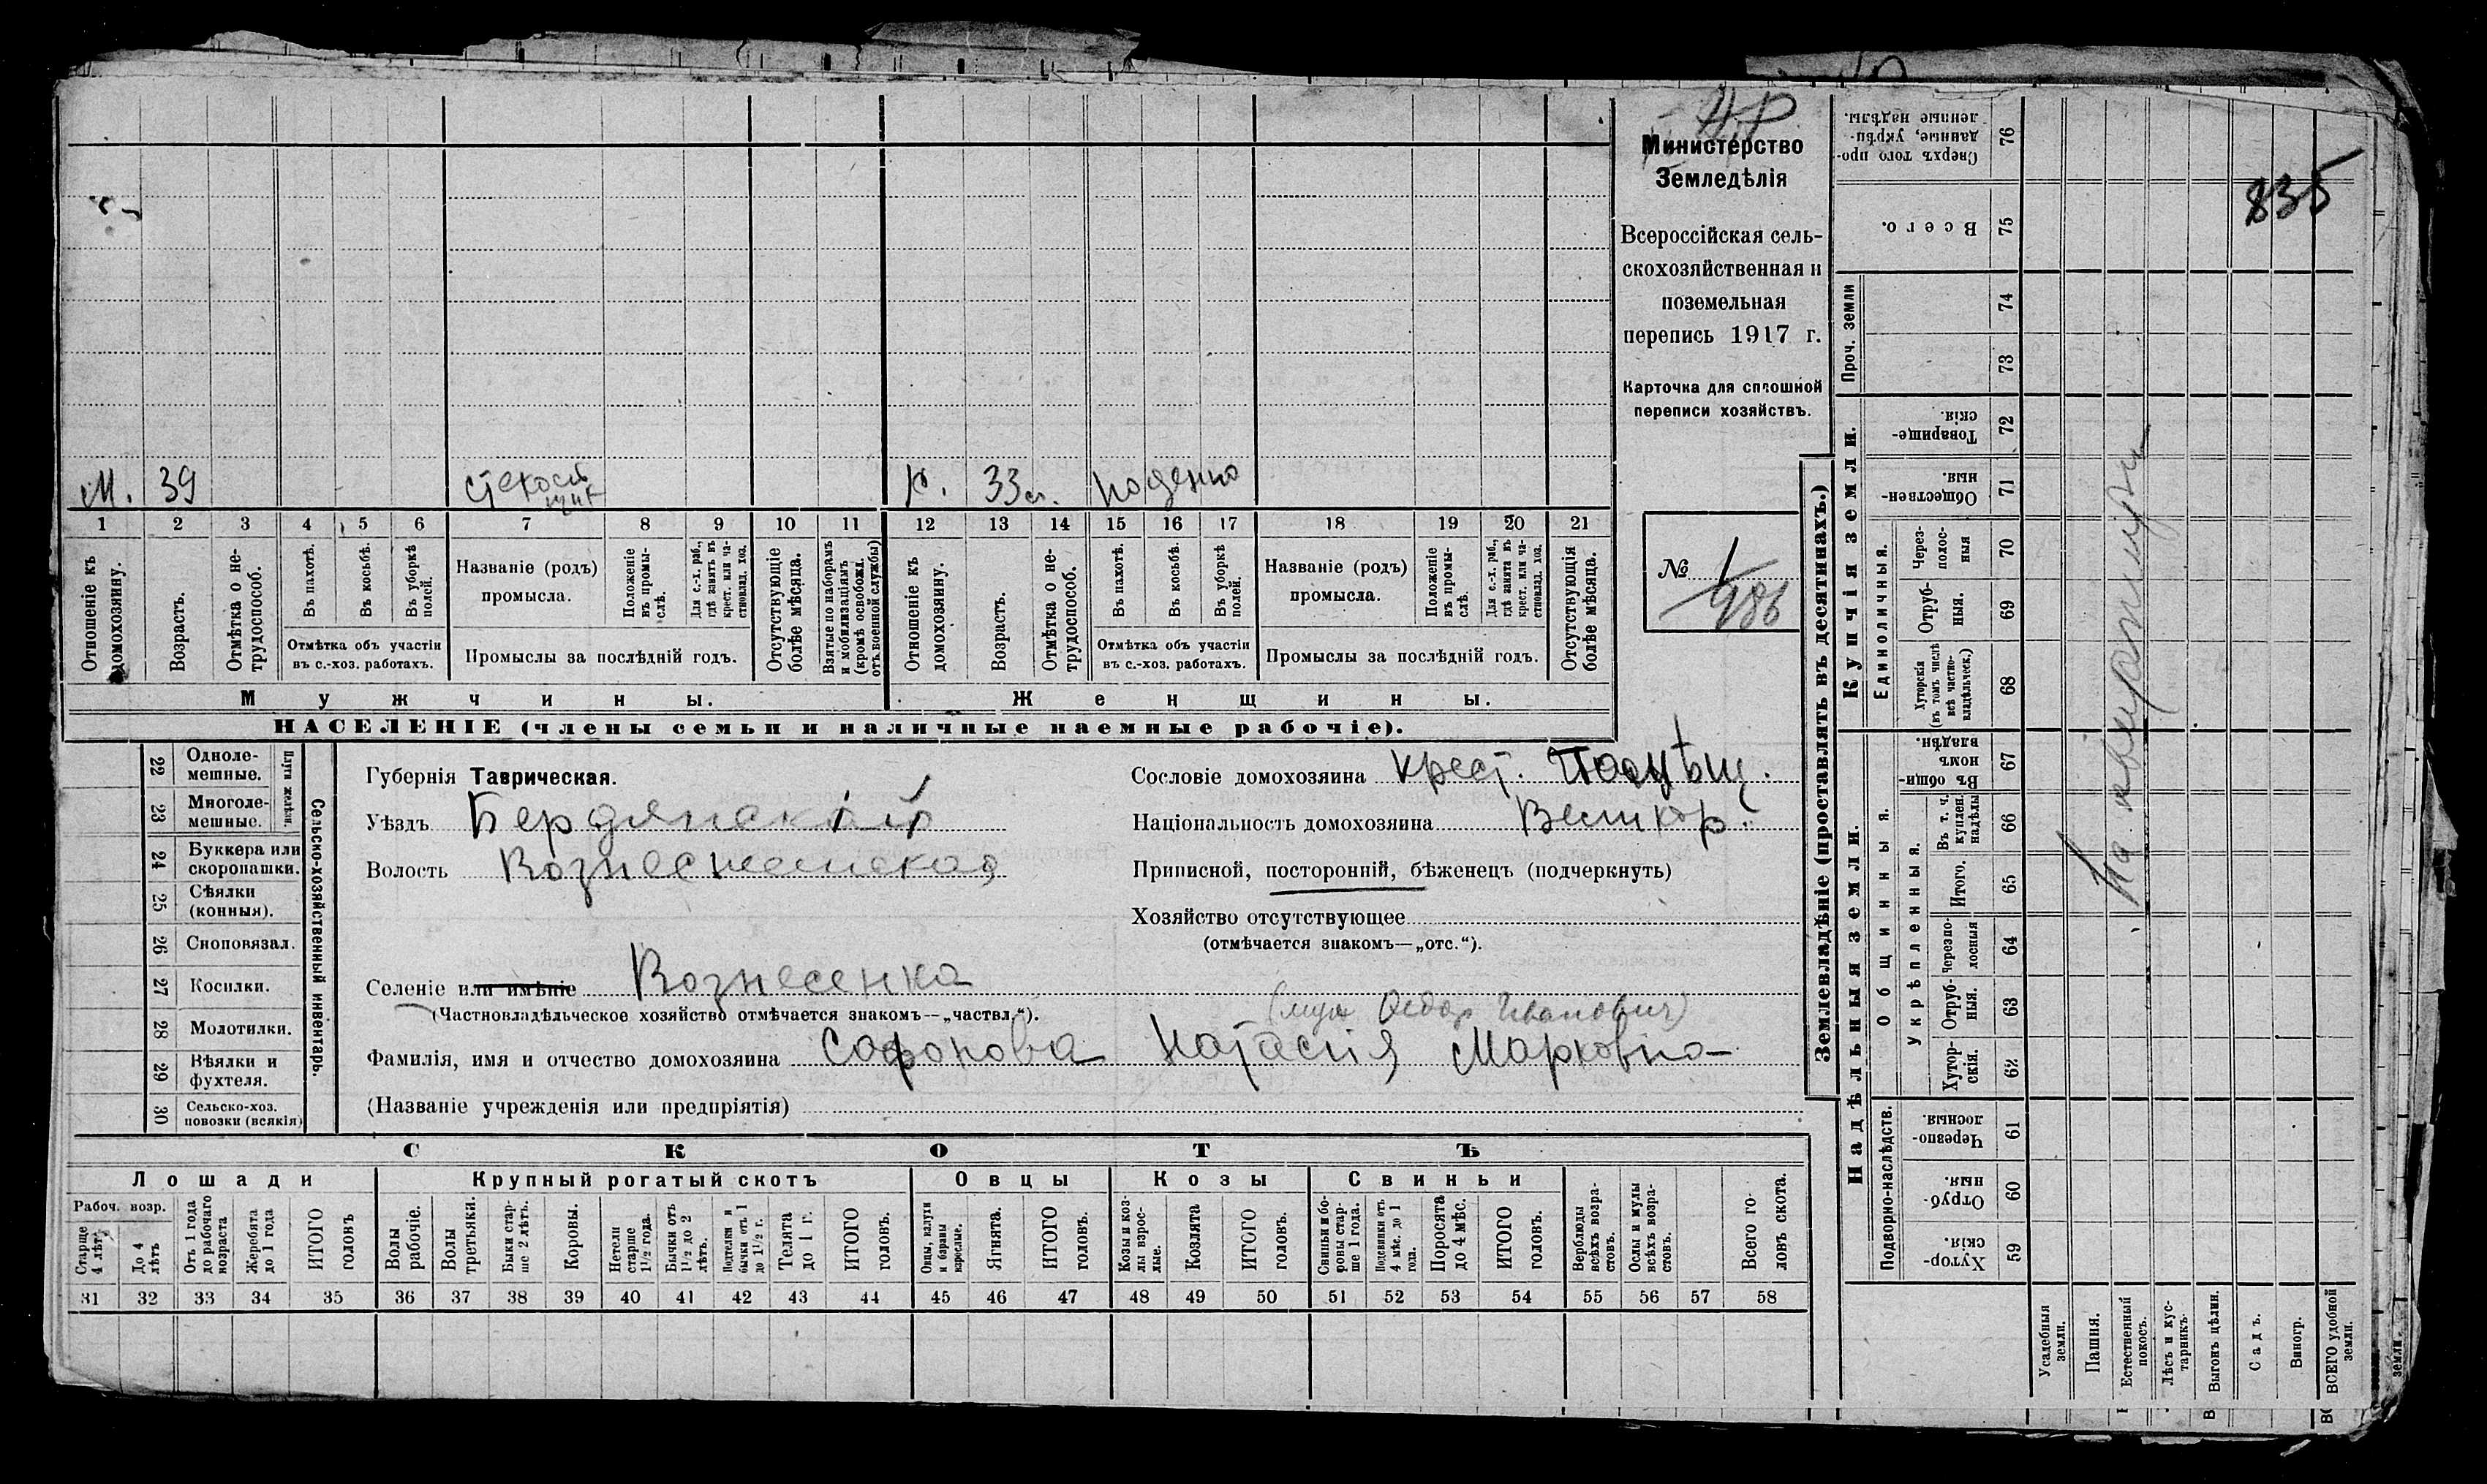 Н,р
Министерство
Земледѣлія
Всероссійская сель-
скохозяйственная и
поземельная
перепись 1917 г.
Карточка для сплошной
переписи хозяйствъ.
№ 1
986
835
М. 39
К. 33 поденно
1 2 3 4 5 6 7 8 9 10 11 12 13 14 15 16 17 18 19 20 21
Отношеніе къ домохозяину.
Возрастъ.
Отмѣтка о не-трудоспособ.
Въ пахотѣ.
Въ косьбѣ.
Въ уборкѣ полей.
Отмѣтка объ участіи
въ с.-хоз. работахъ.
Названіе (родъ)
промысла.
Положеніе въ промы-слѣ.
Для с.-х. раб., гдѣ занятъ въ крест. или ча-стновлад. хоз.
Промыслы за послѣдній годъ.
Отсутствующіе болѣе мѣсяца.
Взятые по наборамъ и мобилизаціямъ (кромѣ освобожд. отъ военной службы)
Отношеніе къ домохозяину.
Возрастъ.
Отмѣтка о не-трудоспособ.
Въ пахотѣ.
Въ косьбѣ.
Въ уборкѣ полей.
Отмѣтка объ участіи
въ с.-хоз. работахъ.
Названіе (родъ)
промысла.
Положеніе въ промы-слѣ.
Для с.-х. раб., гдѣ занята въ крест. или ча-стновлад. хоз.
Промыслы за послѣдній годъ.
Отсутствующія болѣе мѣсяца.
Мужчины.
Женщины.
НАСЕЛЕНІЕ (члены семьи и наличные наемные рабочіе).
22 Одноле-мешные.
23 Многоле-мешные.
Плуги желѣзн.
24 Буккера или скоропашки.
25 Сѣялки (конныя).
26 Сноповязал.
27 Косилки.
28 Молотилки.
29 Вѣялки и фухтеля.
30 Сельско-хоз. повозки (всякія)
Сельско-хозяйственный инвентарь.
Губернія Таврическая.
Уѣздъ Бердянский
Волость Вознесенская
Селеніе или имѣніе Вознесенка
(Частновладѣльческое хозяйство отмѣчается знакомъ—„частвл.“).
Сословіе домохозяина крест.
Національность домохозяина Великор.
Приписной, посторонній, бѣженецъ (подчеркнуть)
Хозяйство отсутствующее
(отмѣчается знакомъ—„отс.“).
(муж Федор Иванович)
Фамилія, имя и отчество домохозяина Сафонова Натасия Марковна
(Названіе учрежденія или предпріятія)
СКОТЪ
Лошади
Крупный рогатый скотъ
Овцы
Козы
Свиньи
Рабоч. возр.
Старше 4 лѣтъ
До 4 лѣтъ
Отъ 1 года до рабочаго возраста
Жеребята до 1 года
ИТОГО головъ
Волы рабочіе.
Волы третьяки.
Быки стар-ше 2 лѣтъ.
Коровы.
Нетели старше 1 1/2 года.
Бычки отъ 1 1/2 до 2 лѣтъ.
Подтелки и бычки отъ 1 до 1 1/2 г.
Телята до 1 г.
ИТОГО головъ.
Овцы, валухи и бараны взрослые.
Ягнята.
ИТОГО головъ.
Козы и коз-лы взрос-лые.
Козлята
ИТОГО головъ.
Свиньи и бо-ровы стар-ше 1 года.
Подсвинки отъ 4 мѣс. до 1 года.
Поросята до 4 мѣс.
ИТОГО головъ.
Верблюды всѣхъ возра-стовъ.
Ослы и мулы всѣхъ возра-стовъ.
Всего го-ловъ скота.
31 32 33 34 35 36 37 38 39 40 41 42 43 44 45 46 47 48 49 50 51 52 53 54 55 56 57 58
Землевладѣніе (проставлять въ десятинахъ.)
Надѣльныя земли.
Купчія земли.
Проч. земли
Подворно-наслѣдств.
Общинныя.
Укрѣпленныя.
Единоличныя.
Сверхъ того про-данные, укрѣп-ленные надѣлы. 76
Всего. 75
74
73
Товарище-скія. 72
Обществен-ныя. 71
Через-полос-ныя 70
Отруб-ныя. 69
Хуторскія (въ томъ числѣ всѣ частно-владѣльческ.) 68
Въ общин-номъ владѣн. 67
Въ т. ч. куплен. надѣлы 66
Итого. 65
Черезпо-лосныя 64
Отруб-ныя. 63
Хутор-скія. 62
Черезпо-лосныя. 61
Отруб-ныя. 60
Хутор-скія. 59
На квартире
Усадебныя земли.
Пашня.
Естественный покосъ.
Лѣсъ и кус-тарникъ.
Выгонъ цѣлин.
Садъ.
Виногр.
ВСЕГО удобной земли.
земли.